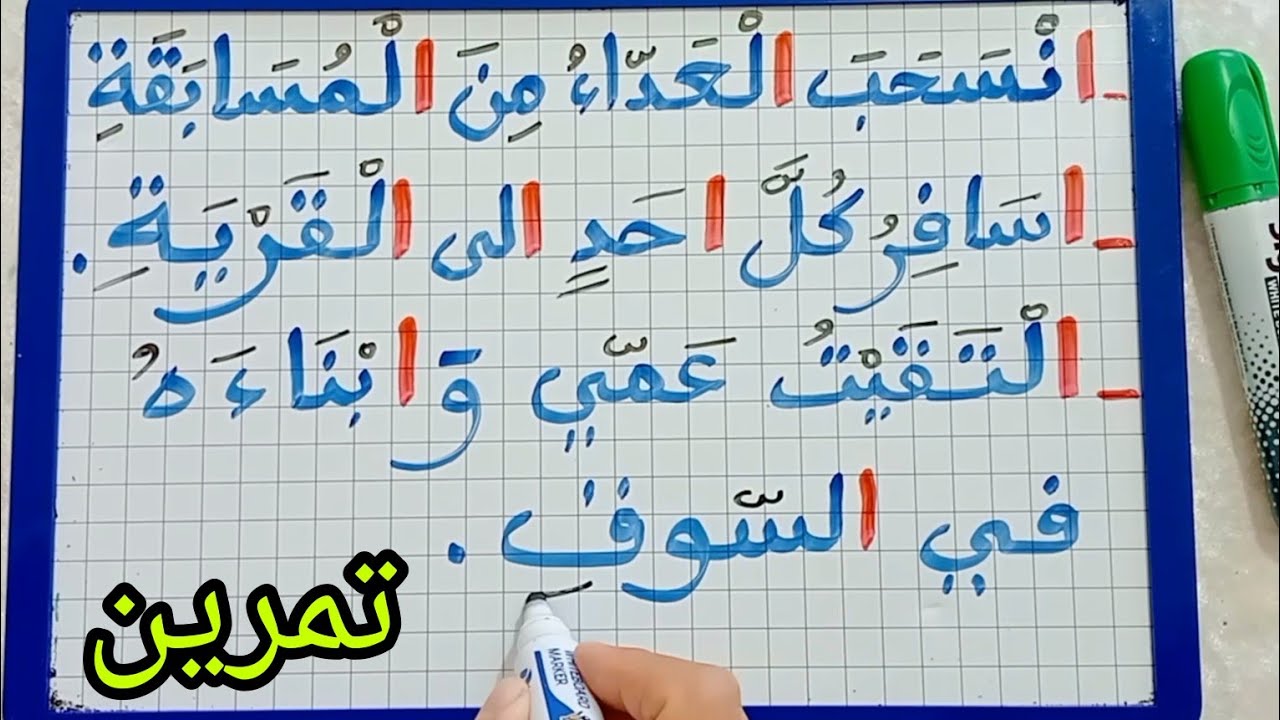 - انْسَحَبَ الْعَدّاءُ مِنَ الْمُسَابَقَةِ
- اسَافِرُ كُلَّ احَدٍ الى الْقَرْيَةِ .
- الْتَقَيْتُ عَمّي وَ ابْنَاءَهُ
في السّوقِ .
تمرين
WHITEBOARD
MARKER